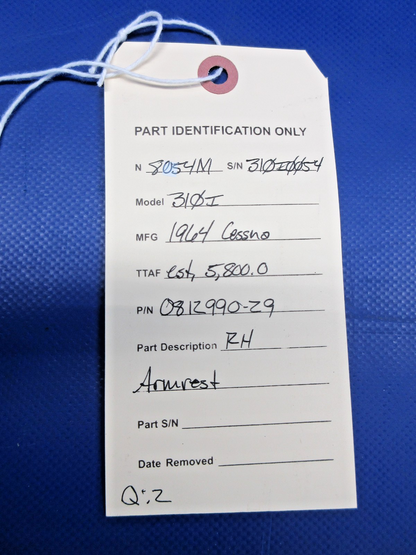 PART IDENTIFICATION ONLY
N 8054M S/N 310I0054
Model 310I
MFG 1964 Cessna
TTAF est, 5,800.0
P/N 0812990-29
Part Description RH
Armrest
Part S/N
Date Removed
Q:2